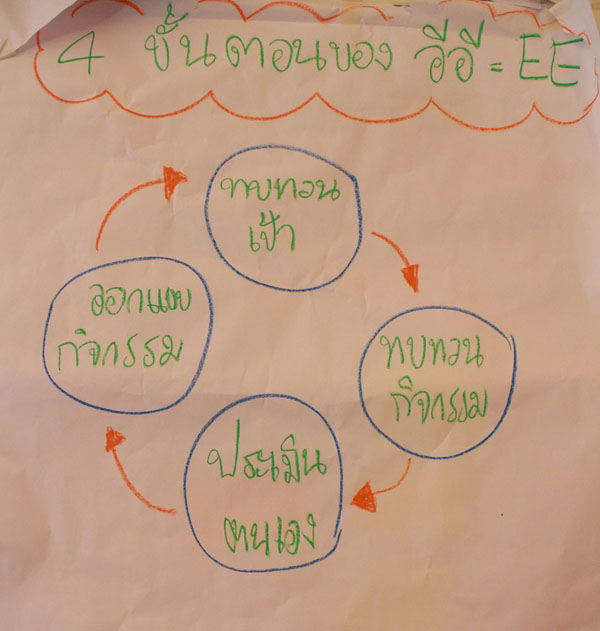 4 ขั้นตอนของ อีอี = EE
ทบทวน
เป้า
ทบทวน
กิจกรรม
ประเมิน
ตนเอง
ออกแบบ
กิจกรรม